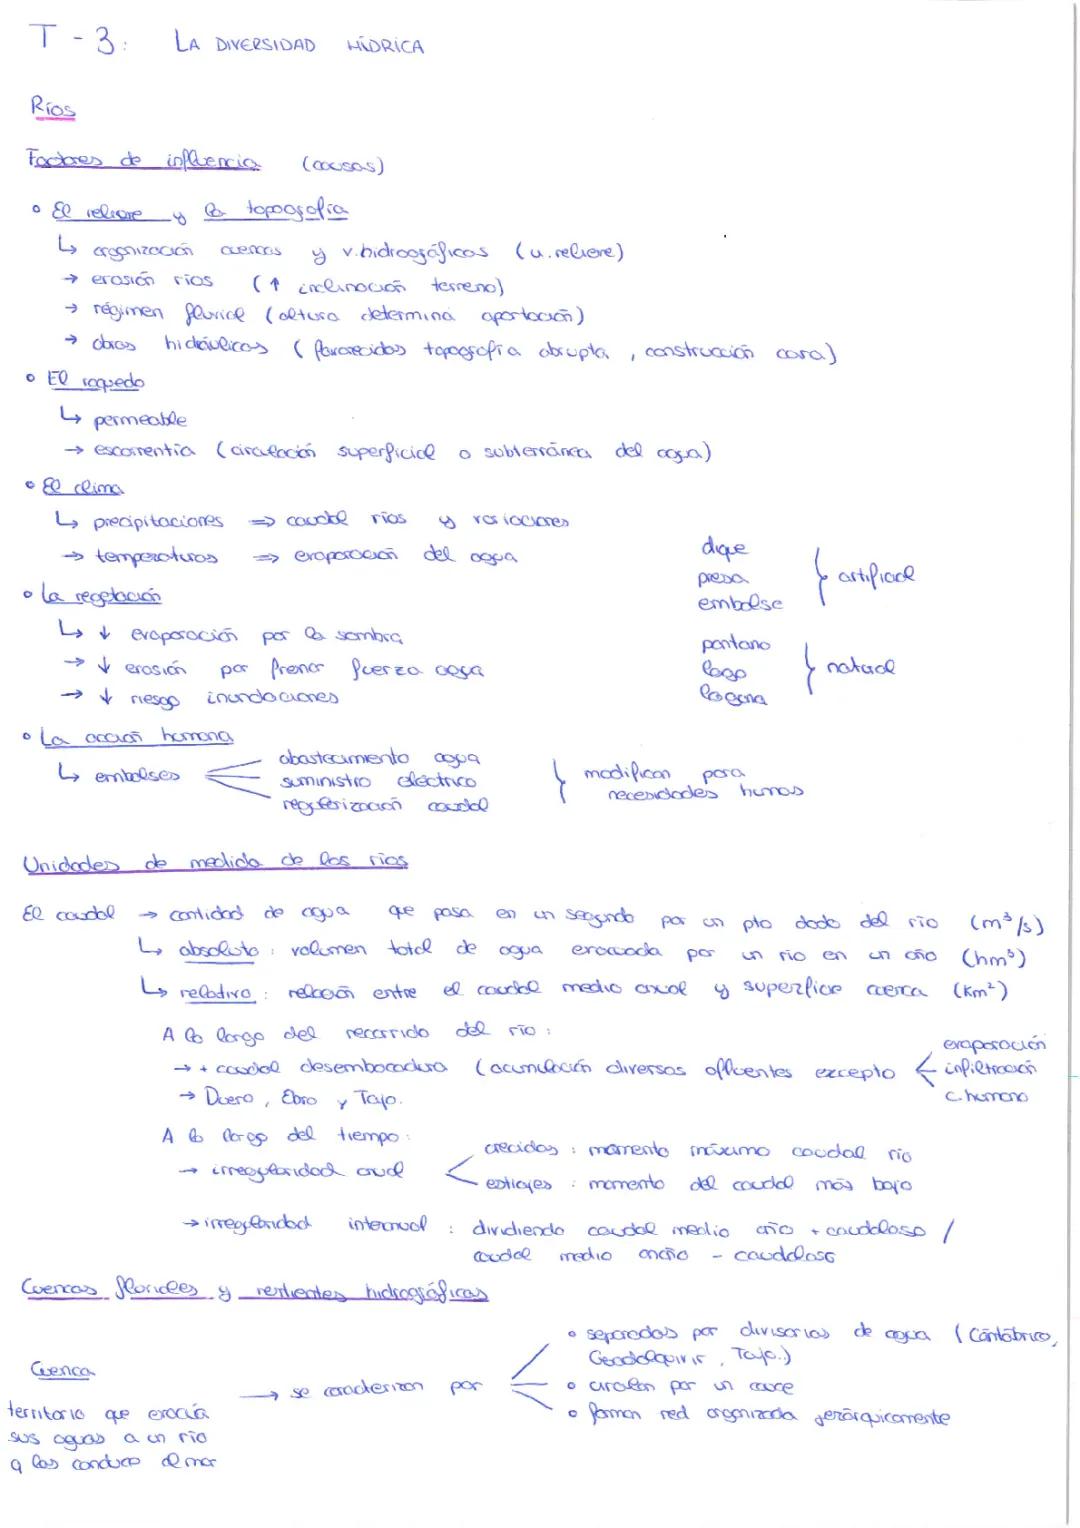 T - 3: LA DIVERSIDAD HÍDRICA
Ríos
Factores de influencia (causas)
• El relieve y la topografía
↳ organización cuencas y v. hidrográficos (u. relieve)
→ erosión ríos (↑ inclinación terreno)
→ régimen fluvial (altura determina aportación)
→ obras hidráulicas (favorecidas topografía abrupta, construcción cara)
• El roquedo
↳ permeable
→ escorrentía (circulación superficial o subterránea del agua)
• El clima
↳ precipitaciones ⇒ caudal ríos y variaciones
→ temperaturas ⇒ evaporación del agua
dique
presa
embalse
} artificial
pantano
lago
laguna
} natural
• La vegetación
↳ ↓ evaporación por la sombra
→ ↓ erosión por frenar fuerza agua
→ ↓ riesgo inundaciones
• La acción humana
↳ embalses
abastecimiento agua
suministro eléctrico
regularización caudal
} modifican para
necesidades humas
Unidades de medida de los ríos
El caudal → cantidad de agua que pasa en un segundo por un pto dado del río (m³/s)
↳ absoluto: volumen total de agua evacuada por un río en un año (hm³)
↳ relativo: relación entre el caudal medio anual y superficie cuenca (Km²)
A lo largo del recorrido del río:
→ + caudal desembocadura (acumulación diversos afluentes excepto
evaporación
infiltración
c. humano
→ Duero, Ebro y Tajo.
A lo largo del tiempo:
→ irregularidad anual
crecidas: momento máximo caudal río
estiajes: momento del caudal más bajo
→ irregularidad interanual: dividiendo caudal medio año + caudaloso /
caudal medio - caudaloso
Cuencas fluviales y vertientes hidrográficas
Cuenca
territorio que evacúa
sus aguas a un río
q las conduce al mar
→ se caracterizan por
• separadas por divisorias de agua (Cantábrico,
Guadalquivir, Tajo.)
• circulan por un cauce
• forman red organizada jerárquicamente